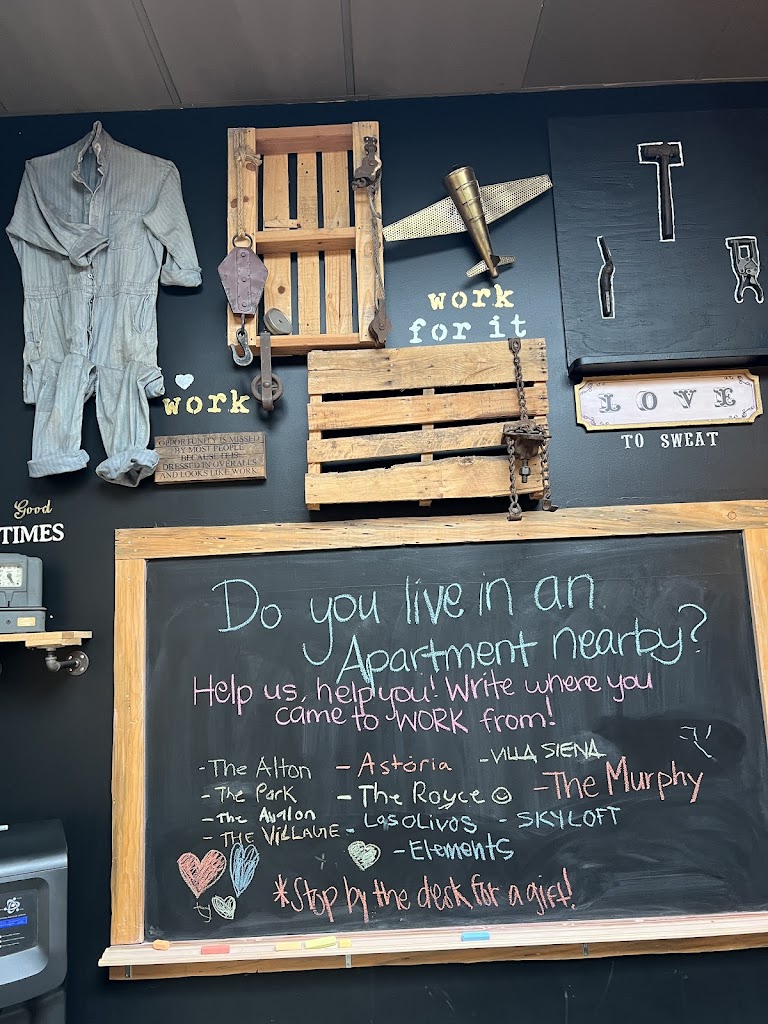 work
for it
work
OPPORTUNITY IS MISSED
BY MOST PEOPLE
BECAUSE IT IS
DRESSED IN OVERALLS
AND LOOKS LIKE WORK
LOVE
TO SWEAT
Good
TIMES
Do you live in an
Apartment nearby?
Help us, help you! Write where you
came to WORK from!
- The Alton
- The Park
- The Avalon
- THE VILLAGE
- Astoria
- The Royce ☺
- Los Olivos
- Elements
- VILLA SIENA
- The Murphy
- SKYLOFT
*Stop by the desk for a gift!